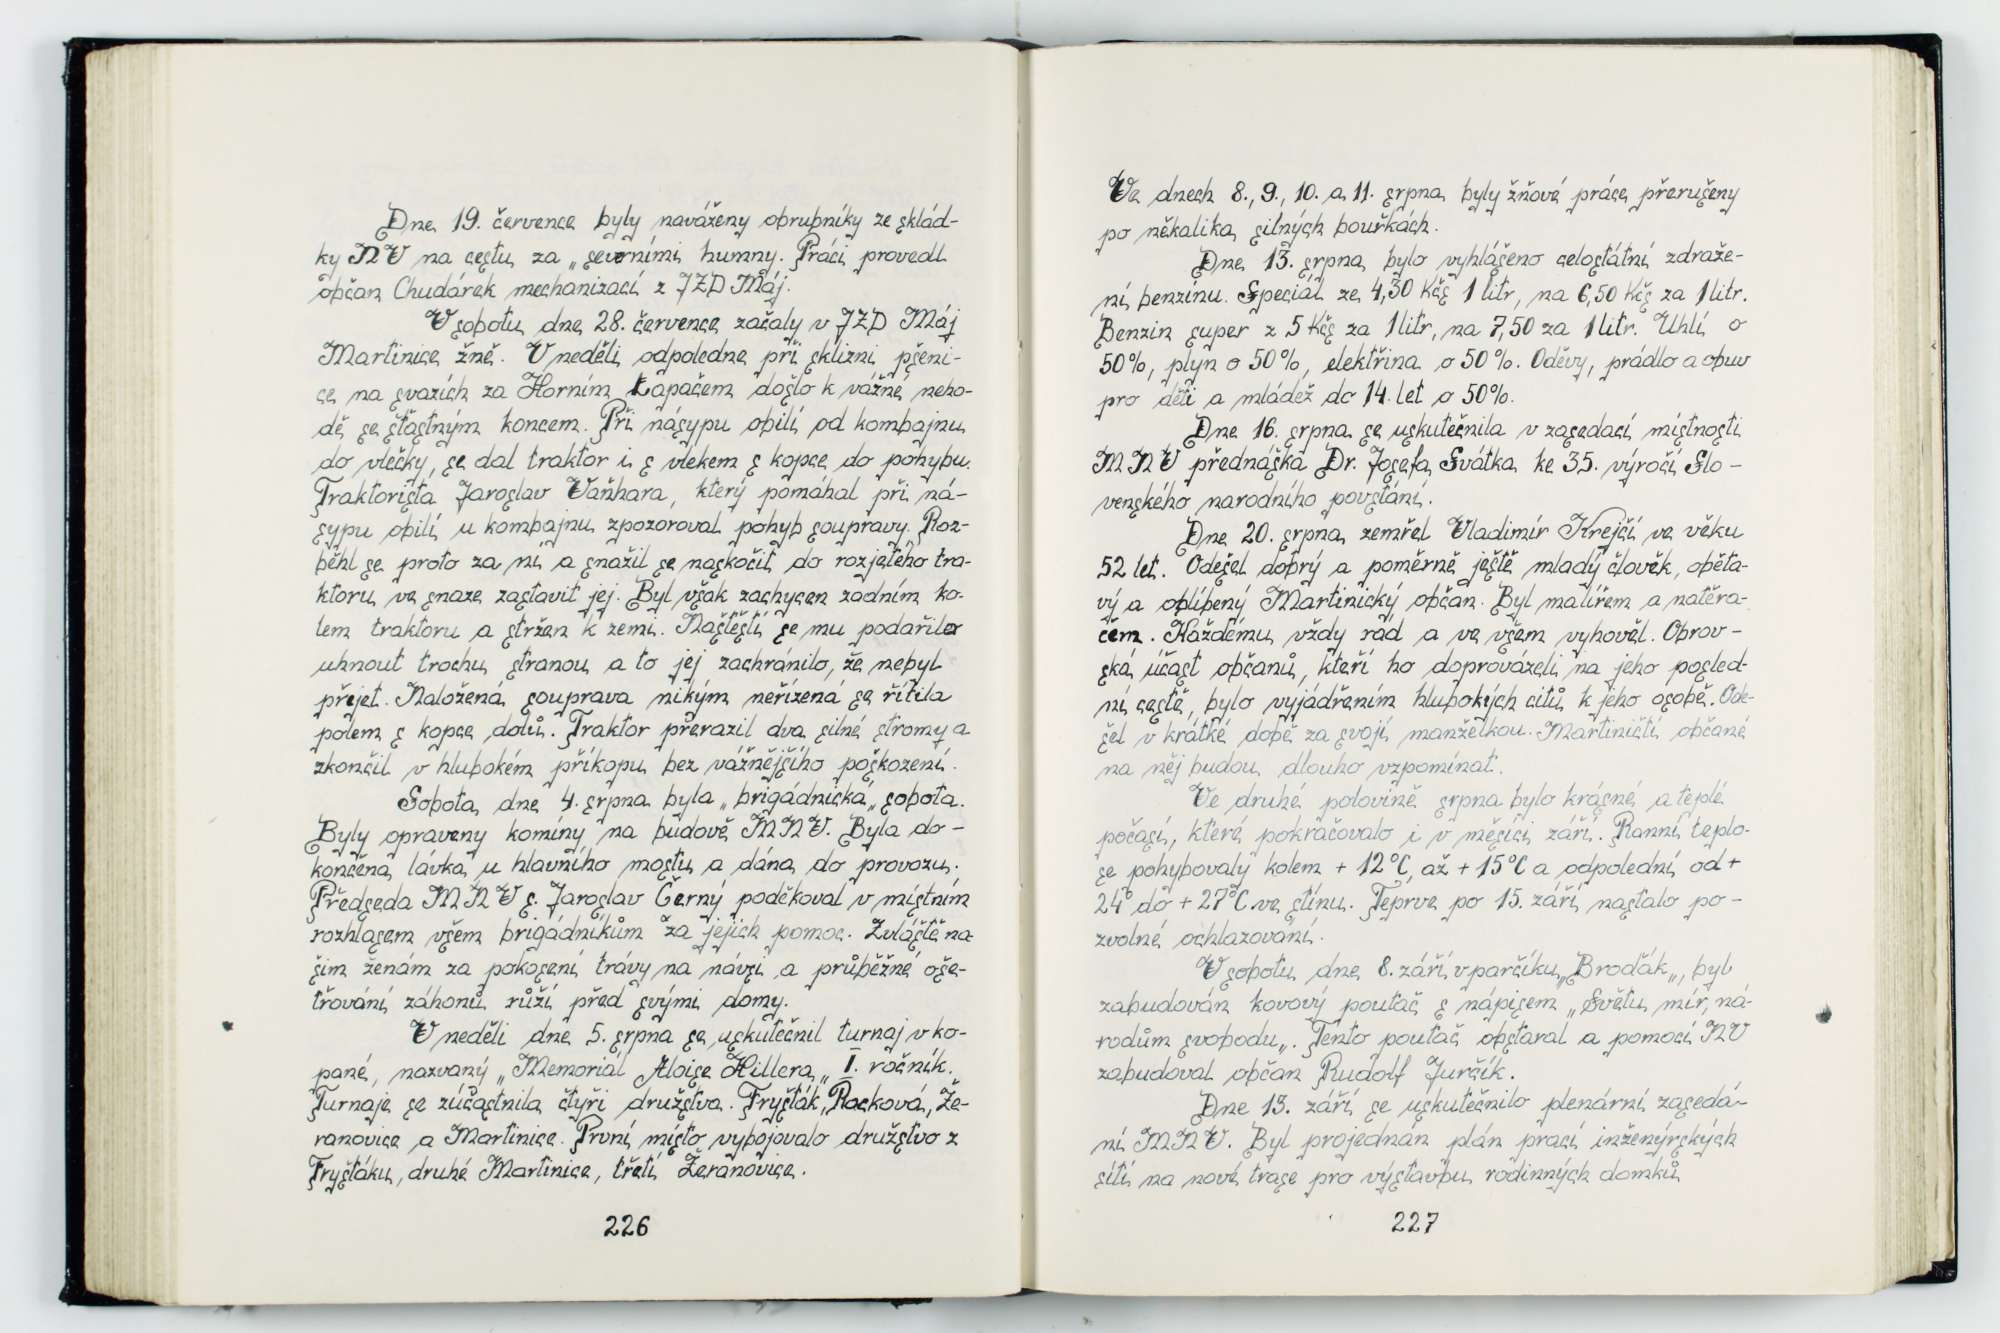 Dne 19. července byly naváženy obrubníky ze sklád-
ky MNV na cestu za „severními humny. Práci provedl
občan Chudárek mechanizací z JZD Máj.
V sobotu dne 28. července začaly v JZD Máj
Martinice žně. V neděli odpoledne při sklizni pšeni-
ce na svazích za Horním Lapačem došlo k vážné neho-
dě se šťastným koncem. Při násypu obilí od kombajnu
do vlečky, se dal traktor i s vlekem s kopce do pohybu.
Traktorista Jaroslav Vaňhara, který pomáhal při ná-
sypu obilí u kombajnu zpozoroval pohyb soupravy. Roz-
běhl se proto za ní a snažil se naskočit do rozjetého tra-
ktoru ve snaze zastavit jej. Byl však zachycen zadním ko-
lem traktoru a stržen k zemi. Naštěstí se mu podařilo
uhnout trochu stranou a to jej zachránilo, že nebyl
přejet. Naložená souprava nikým neřízená se řítila
polem s kopce dolů. Traktor přerazil dva silné stromy a
zkončil v hlubokém příkopu bez vážnějšího poškození.
Sobota dne 4. srpna byla „brigádnická„ sobota.
Byly opraveny komíny na budově MNV. Byla do-
končena lávka u hlavního mostu a dána do provozu.
Předseda MNV s. Jaroslav Černý poděkoval v místním
rozhlasem všem brigádníkům za jejich pomoc. Zvláště na-
šim ženám za pokosení trávy na návsi a průběžné oše-
třování záhonů růží před svými domy.
V neděli dne 5. srpna se uskutečnil turnaj v ko-
pané, nazvaný „Memoriál Aloise Hillera„ I. ročník.
Turnaje se zúčastnila čtyři družstva. Fryšták, Racková, Že-
ranovice a Martinice. První místo vybojovalo družstvo z
Fryštáku, druhé Martinice, třetí Žeranovice.
226
Ve dnech 8., 9., 10. a 11. srpna byly žňové práce přerušeny
po několika silných bouřkách.
Dne 13. srpna bylo vyhlášeno celostátní zdraže-
ní benzínu. Speciál ze 4,30 Kčs 1 litr, na 6,50 Kčs za 1 litr.
Benzin super z 5 Kčs za 1 litr, na 7,50 za 1 litr. Uhlí o
50%, plyn o 50%, elektřina o 50%. Oděvy, prádlo a obuv
pro děti a mládež do 14. let o 50%.
Dne 16. srpna se uskutečnila v zasedací místnosti
MNV přednáška Dr. Josefa Svátka ke 35. výročí Slo-
venského narodního povstání.
Dne 20. srpna zemřel Vladimír Krejčí ve věku
52 let. Odešel dobrý a poměrně ještě mladý člověk, oběta-
vý a oblíbený Martinický občan. Byl malířem a natěra-
čem. Každému vždy rád a ve všem vyhověl. Obrov-
ská účast občanů, kteří ho doprovázeli na jeho posled-
ní cestě, bylo vyjádřením hlubokých citů k jeho osobě. Ode-
šel v krátké době za svojí manželkou. Martiničtí občané
na něj budou dlouho vzpomínat.
Ve druhé polovině srpna bylo krásné a teplé
počasí, které pokračovalo i v měsíci září. Ranní teplo-
se pohybovaly kolem + 12°C, až + 15°C a odpolední od +
24° do + 27°C ve stínu. Teprve po 15. září nastalo po-
zvolné ochlazování.
V sobotu dne 8. září v parčíku „Broďák„, byl
zabudován kovový poutač s nápisem „Světu mír, ná-
rodům svobodu„. Tento poutač obstaral a pomocí NV
zabudoval občan Rudolf Jurčík.
Dne 13. září se uskutečnilo plenární zasedá-
ní MNV. Byl projednán plán prací inženýrských
sítí na nové trase pro výstavbu rodinných domků
227